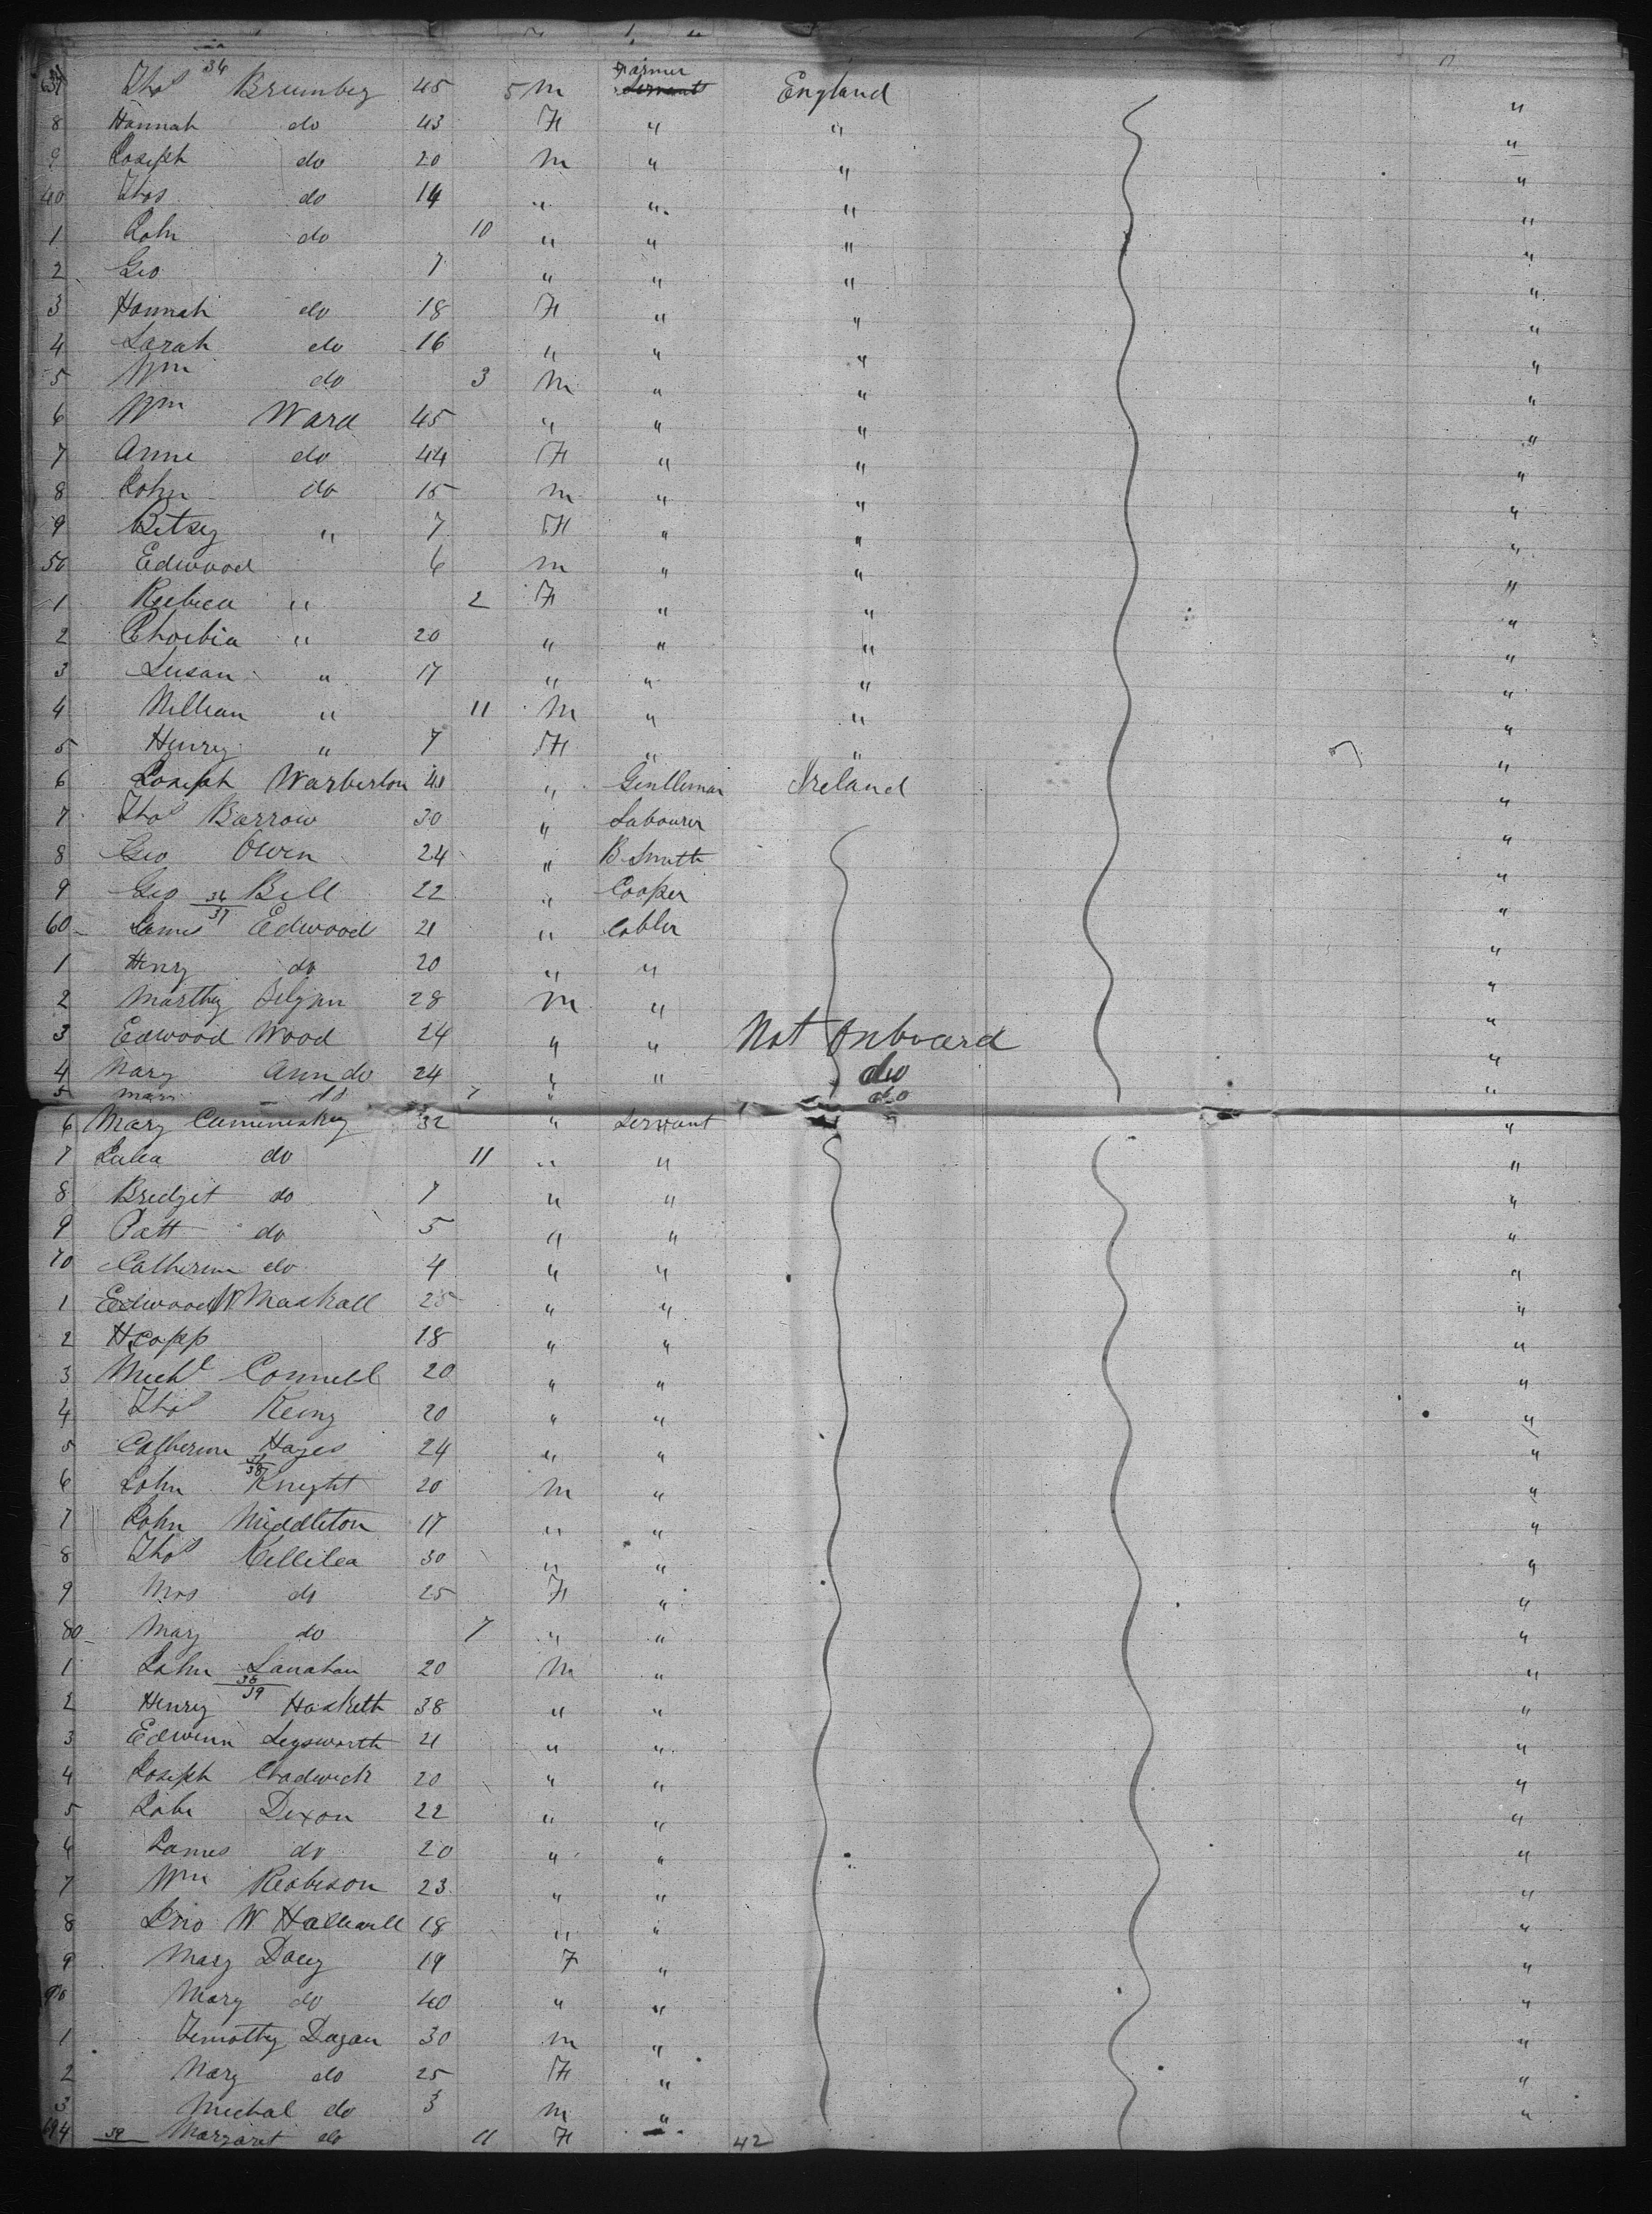 637 Thos 34 Brumby 45 5 M Farmer Servant England "
8 Hannah do 43 F " " "
9 Joseph do 20 M " " "
40 Thos do 14 " " " "
1 John do 10 " " " "
2 Geo 7 " " " "
3 Hannah do 18 F " " "
4 Sarah do 16 " " " "
5 Wm do 3 M " " "
6 Wm Ward 45 " " " "
7 Anne do 44 F " " "
8 John do 15 M " " "
9 Betsy " 7 F " " "
50 Edwood 6 M " " "
1 Rebica " 2 F " " "
2 Phoebia " 20 " " " "
3 Susan " 17 " " " "
4 William " 11 M " " "
5 Henry " 7 F " " "
6 Joseph Warberton 41 " Gentleman Ireland "
7 Thos Barrow 30 " Labourer "
8 Geo Owen 24 " B. Smith "
9 Geo 36 37 Bell 22 " Cooper "
60 James Edwood 21 " Cobler "
1 Henry do 20 " " "
2 Marthy 28 M " "
3 Edwood Wood 24 " " Not Onboard "
4 Mary Ann do 24 " " do "
5 Mary do 7 " do "
6 Mary Cumminskey 32 " Servant "
7 do 11 " " "
8 Bridget do 7 " " "
9 Patt do 5 " " "
70 Catherine do 4 " " "
1 Edwood W Maskall 25 " " "
2 H Copp 18 " " "
3 Michl Connell 20 " " "
4 Thos Keing 20 " " "
5 Catherine Hayes 24 " " "
6 John 38 Knight 20 M " "
7 John Middleton 17 " " "
8 Thos Killilea 30 " " "
9 Mrs do 25 F " "
80 Mary do 7 " " "
1 John Lanahan 20 M " "
2 Henry 38 39 Hasketh 38 " " "
3 Edwinn Legsworth 21 " " "
4 Joseph Chadwick 20 " " "
5 John Dixon 22 " " "
6 James do 20 " " "
7 Wm Robeson 23 " " "
8 Jno W Halliwell 18 " " "
9 Mary Doey 19 F " "
90 Mary do 40 " " "
1 Timothy Dugan 30 M " "
2 Mary do 25 F " "
3 Michal do 3 M " "
694 39 Margaret do 11 F " 42